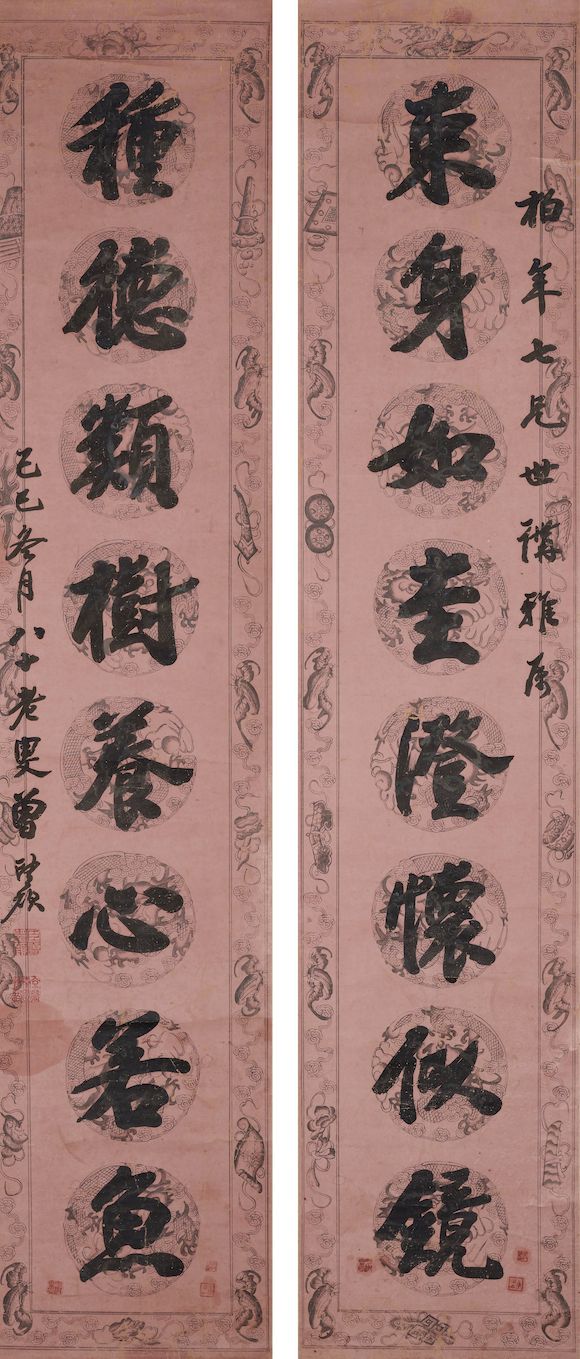 柏年七兄世講雅属
束身如圭澄懷似鏡
種德類樹養心若魚
己巳冬月八十老叟曾望顏